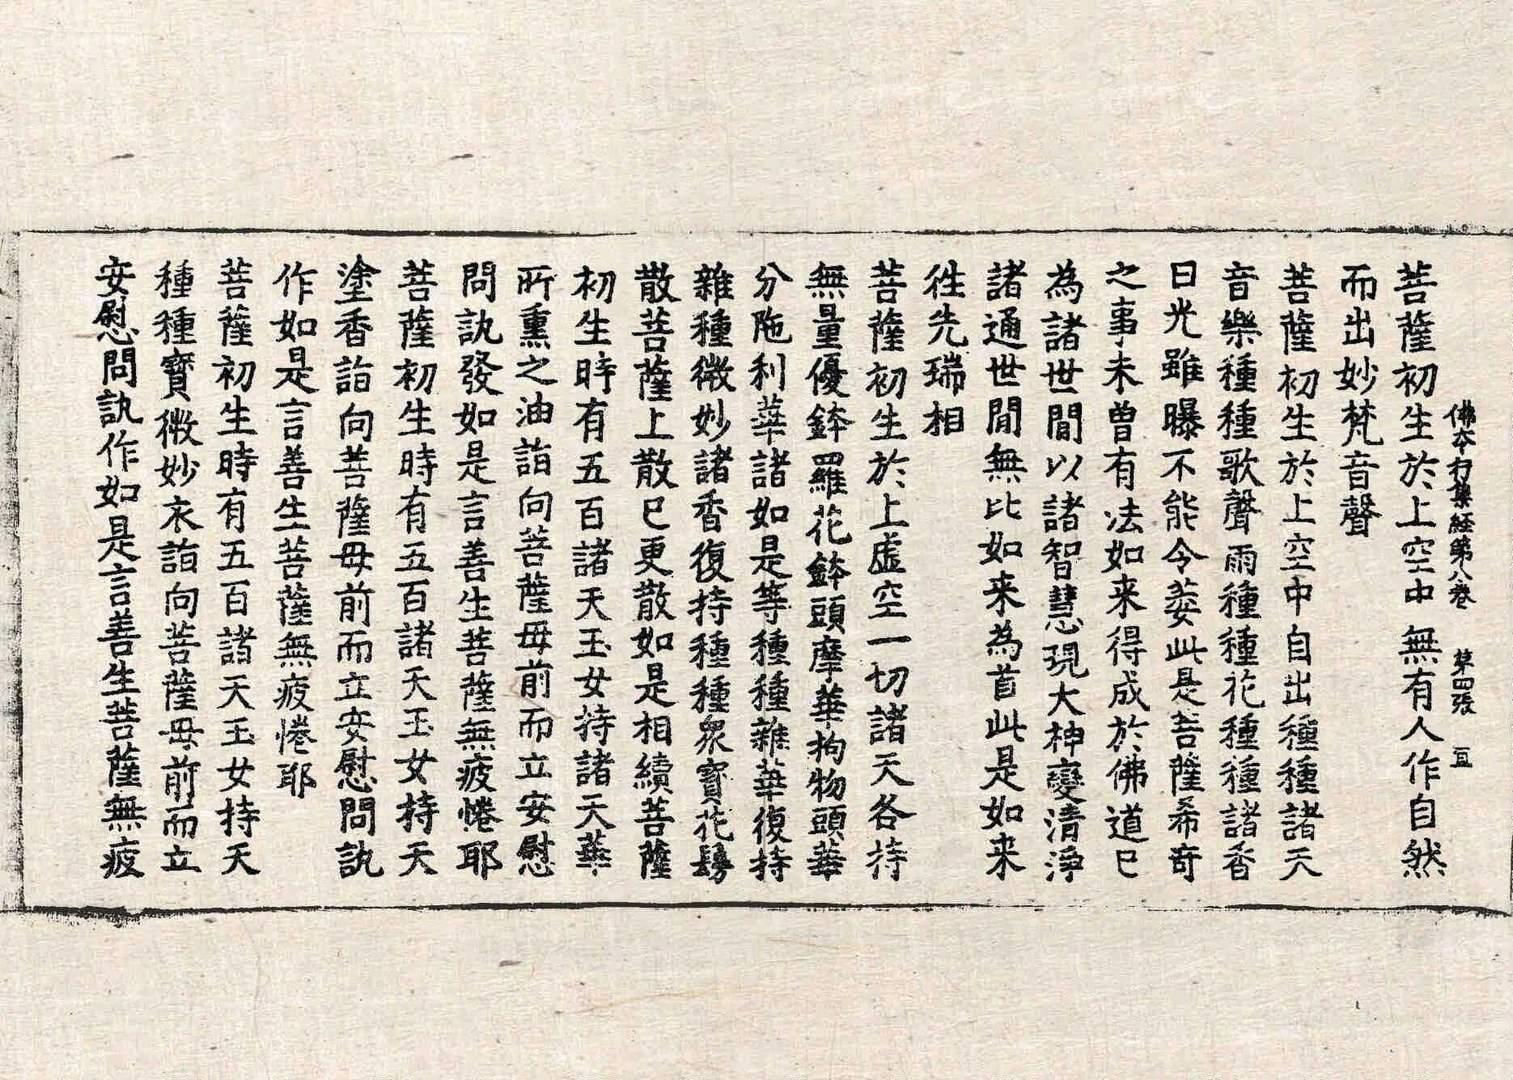 佛本行集經第八卷 草四張 宜
菩薩初生於上空中無有人作自然
而出妙梵音聲
菩薩初生於上空中自出種種諸天
音樂種種歌聲雨種種花種種諸香
日光雖曝不能令萎此是菩薩希奇
之事未曾有法如来得成於佛道已
為諸世間以諸智慧現大神變清淨
諸通世間無比如来為首此是如来
徃先瑞相
菩薩初生於上虛空一切諸天各持
無量優鉢羅花鉢頭摩華拘物頭華
分陁利華諸如是等種種雜華復持
雜種微妙諸香復持種種眾寶花鬘
散菩薩上散已更散如是相續菩薩
初生時有五百諸天玉女持諸天華
所熏之油詣向菩薩母前而立安慰
問訊發如是言善生菩薩無疲惓耶
菩薩初生時有五百諸天玉女持天
塗香詣向菩薩母前而立安慰問訊
作如是言善生菩薩無疲惓耶
菩薩初生時有五百諸天玉女持天
種種寶微妙衣詣向菩薩母前而立
安慰問訊作如是言善生菩薩無疲